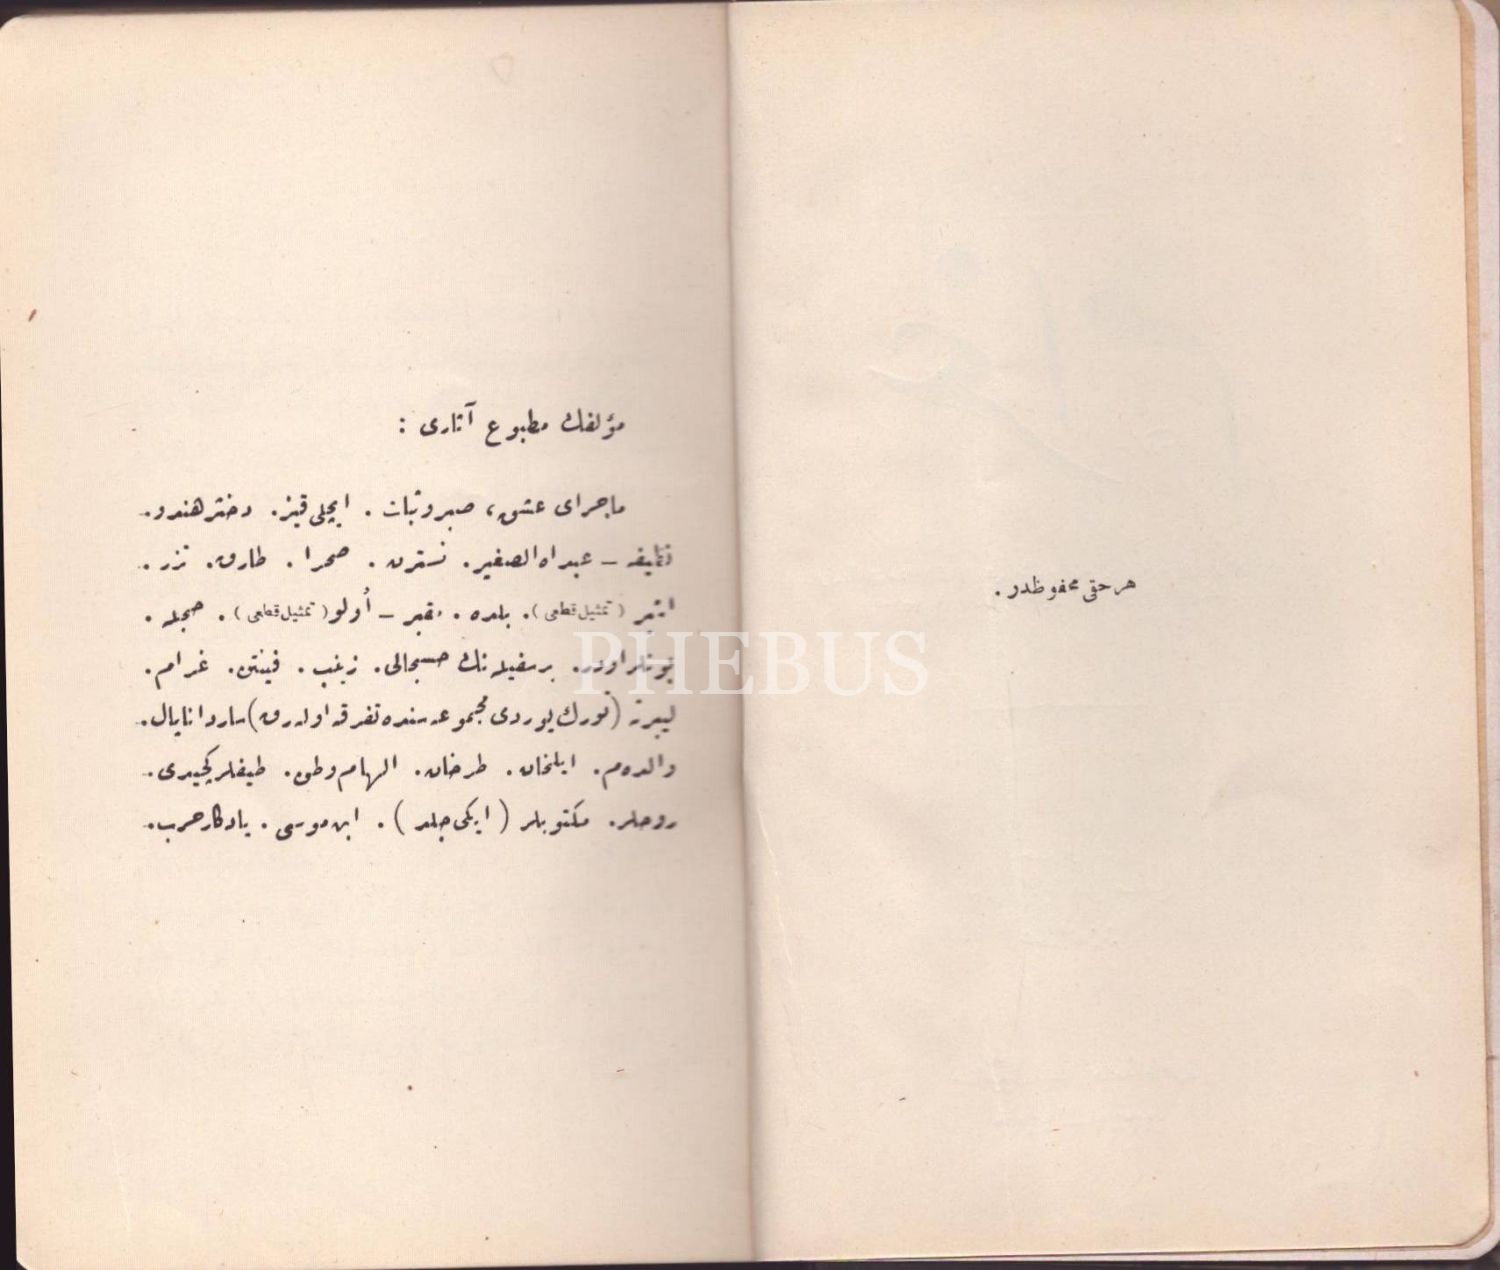 هر حقی محفوظدر .
مؤلفك مطبوع آثاری :
ماجرای عشق ، صبر و ثبات . ایچلی قیز . دختر هندو .
نظیفه — عبدالله الصغیر . نسترن . صحرا . طارق . تزر .
اشبر ( تمثیل قطعی ) . بلده . مقبر — أولو ( تمثیل قطعی ) . حجله .
بونلر اودر . بر سفیله نك حسبحالی . زینب . فینتن . غرام .
لیبرته ( تورك یوردی مجموعه سنده تفرقه اوله رق ) ساردانابال .
والده م . ایلخان . طرخان . الهام وطن . طیفلر كچیدی .
روحلر . مكتوبلر ( ایكی جلد ) . ابن موسی . یادكار حرب .
PHEBUS